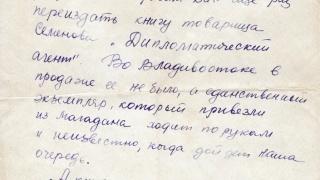 ещё раз
переиздать книгу товарища
Семенова „Дипломатический
агент" Во Владивостоке в
продаже ее не было, а единственный
экземпляр, который привезли
из Магадана ходит по рукам
и неизвестно, когда дойдет наша
очередь.